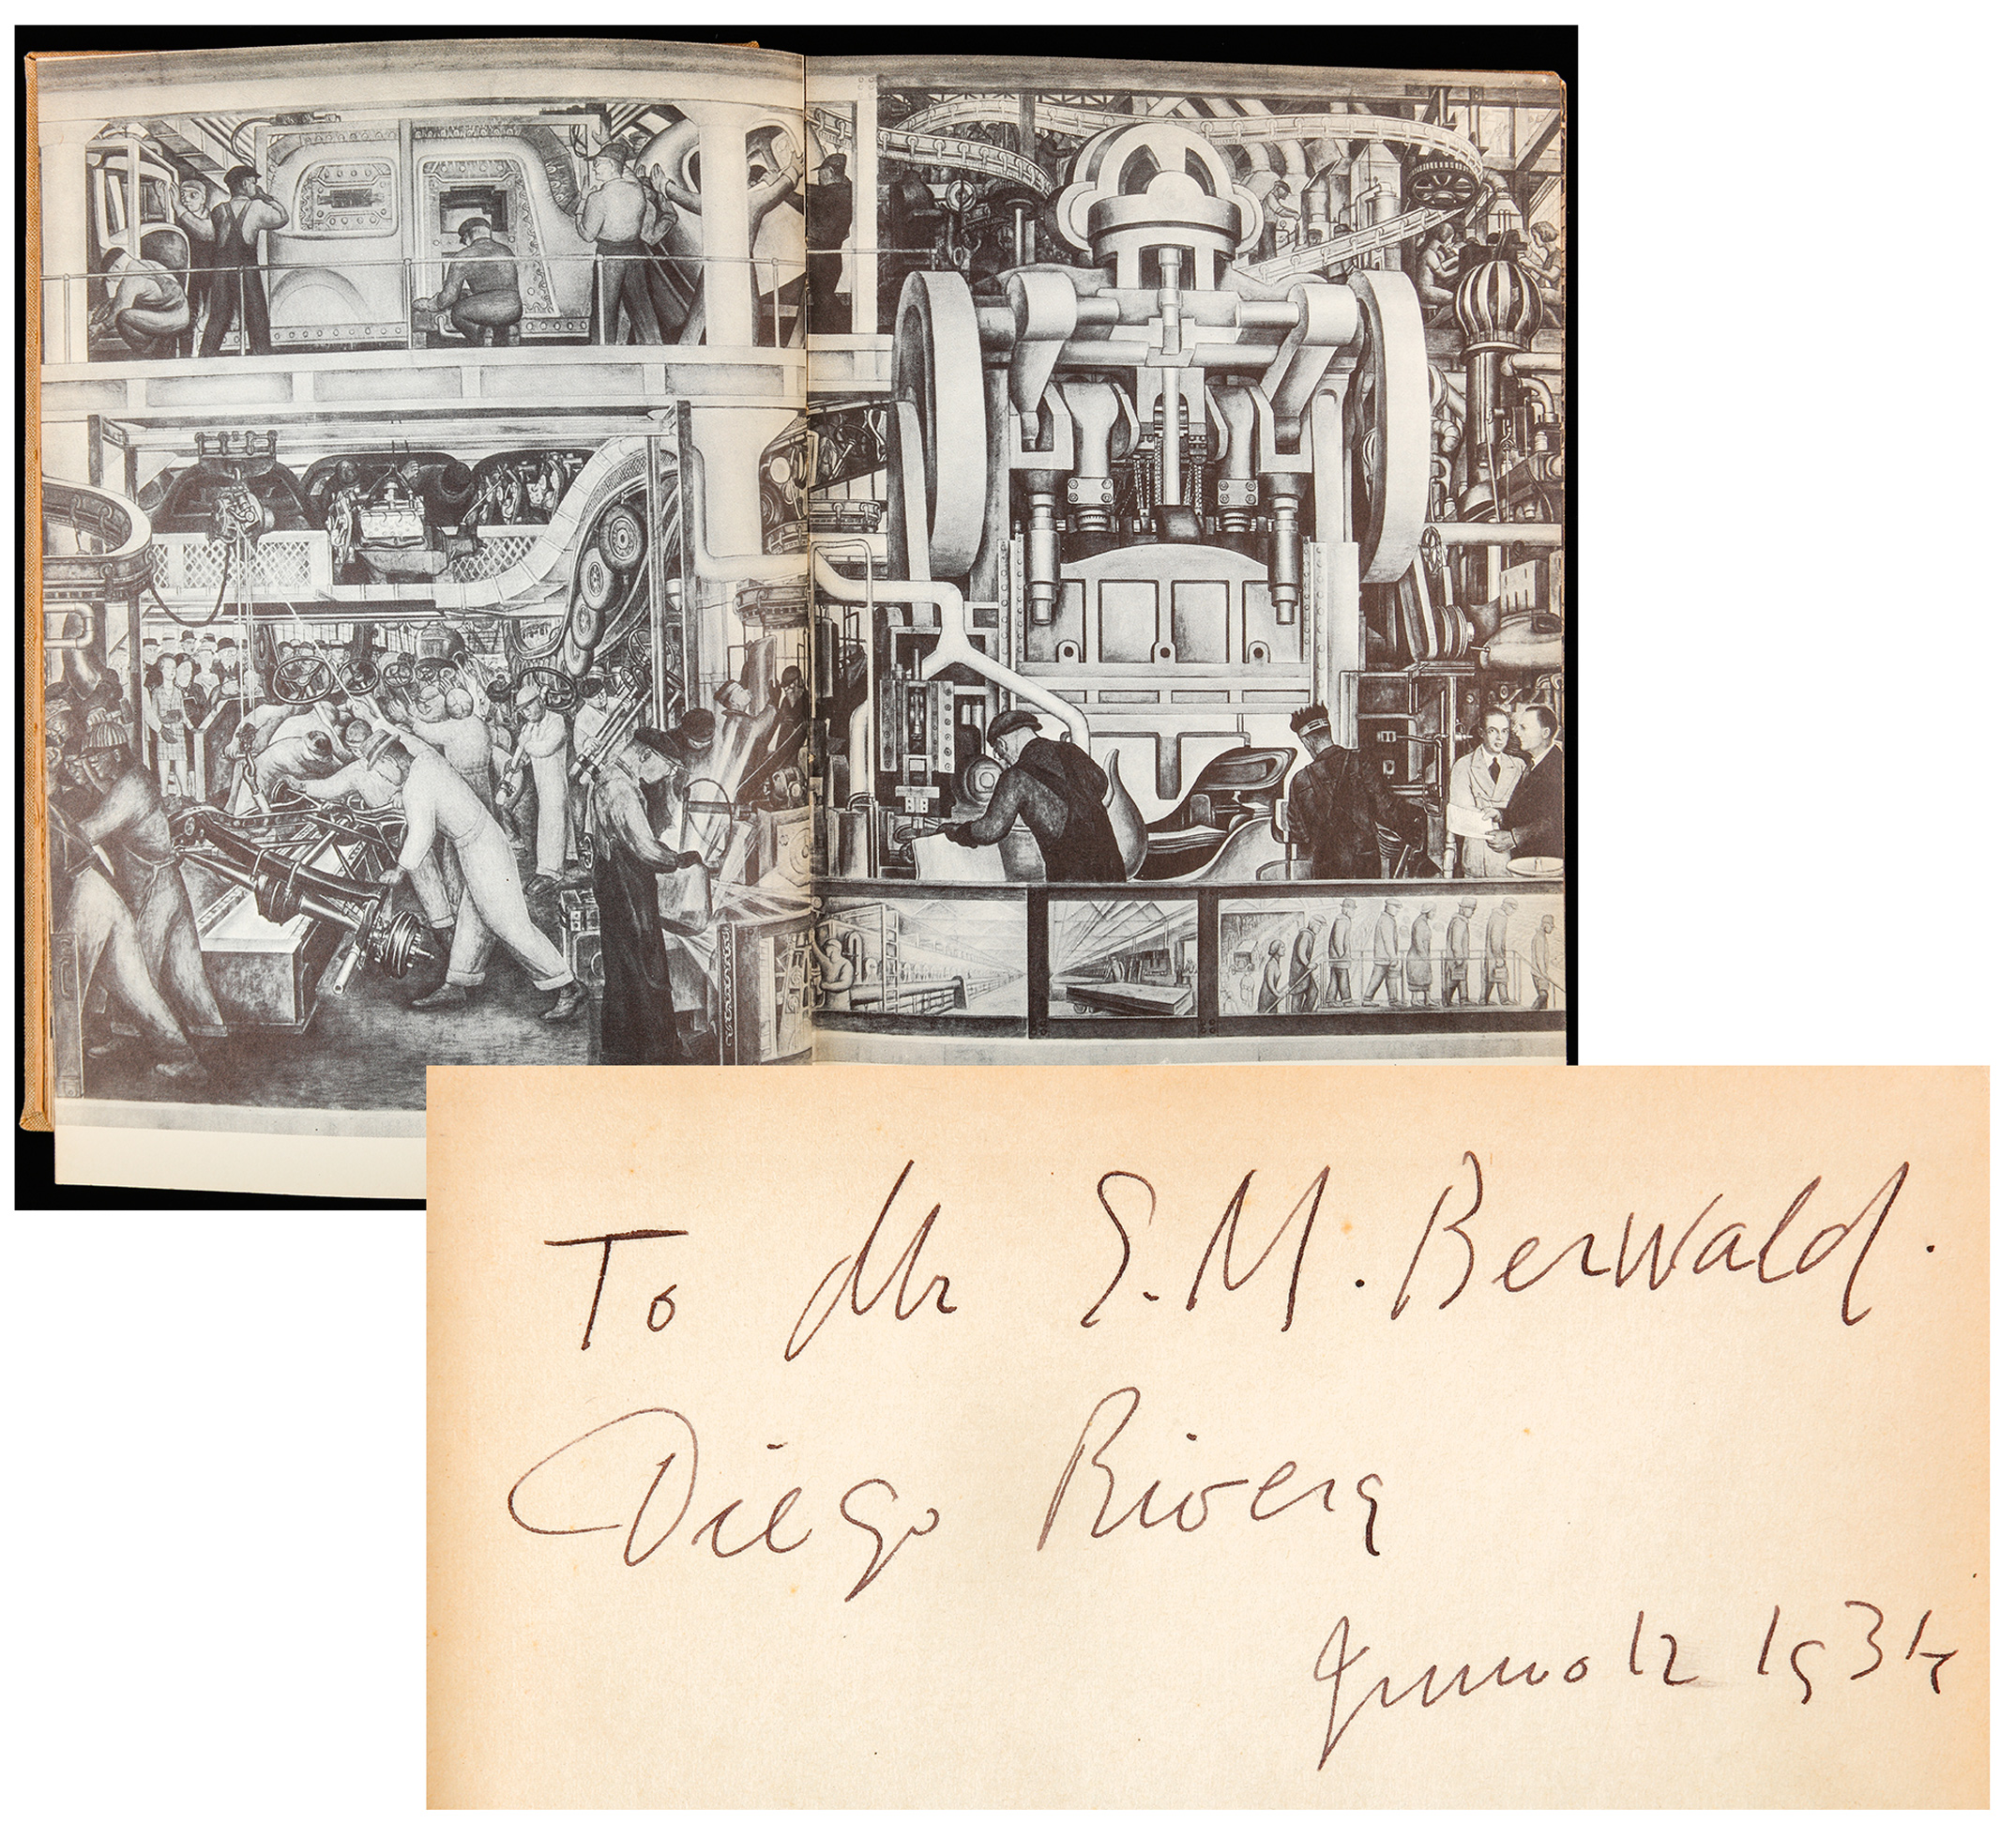 To Mr S. M. Berwald.
Diego Rivera
Junio 12 1934